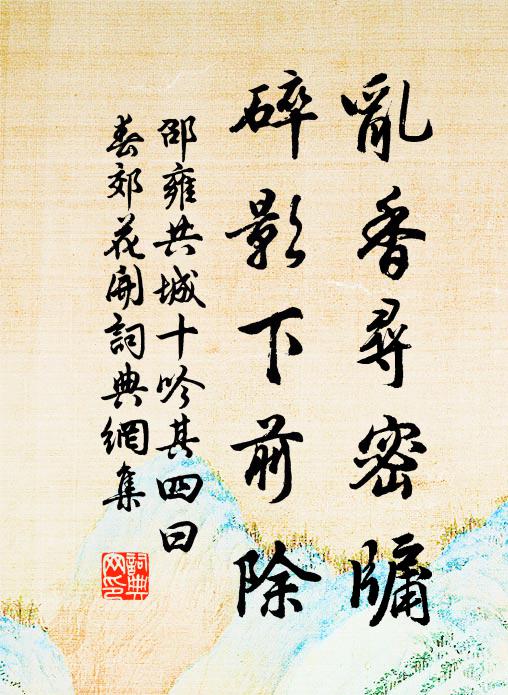 亂香尋密牖
碎影下前除
邵雍共城十吟其四曰
春郊花開詞典網集
詞典
網印